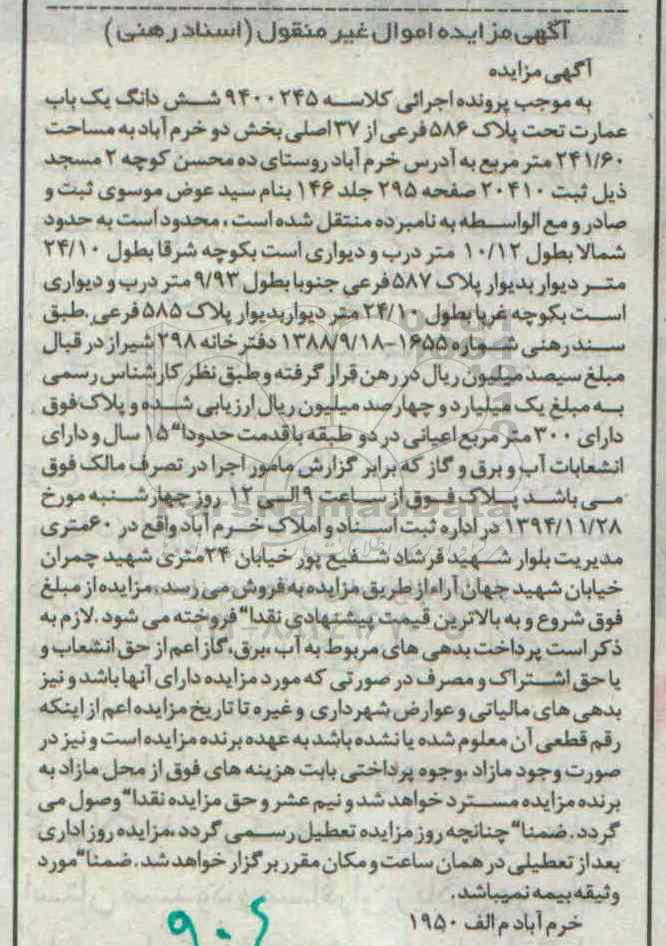 آگهی مزایده اموال غیر منقول (اسناد رهنی)
آگهی مزایده
به موجب پرونده اجرائی کلاسه ۹۴۰۰۲۴۵ شش دانگ یک باب
عمارت تحت پلاک ۵۸۶ فرعی از ۳۷ اصلی بخش دو خرم آباد به مساحت
۲۴۱/۶۰ متر مربع به آدرس خرم آباد روستای ده محسن کوچه ۲ مسجد
ذیل ثبت ۲۰۴۱۰ صفحه ۲۹۵ جلد ۱۴۶ بنام سید عوض موسوی ثبت و
صادر و مع الواسطه به نامبرده منتقل شده است ، محدود است به حدود
شمالا بطول ۱۰/۱۲ متر درب و دیواری است بکوچه شرقا بطول ۲۴/۱۰
متر دیوار بدیوار پلاک ۵۸۷ فرعی جنوبا بطول ۹/۹۳ متر درب و دیواری
است بکوچه غربا بطول ۲۴/۱۰ متر دیوار بدیوار پلاک ۵۸۵ فرعی .طبق
سند رهنی شماره ۱۶۵۵-۱۳۸۸/۹/۱۸ دفتر خانه ۲۹۸ شیراز در قبال
مبلغ سیصد میلیون ریال در رهن قرار گرفته و طبق نظر کارشناس رسمی
به مبلغ یک میلیارد و چهار صد میلیون ریال ارزیابی شده و پلاک فوق
دارای ۳۰۰ متر مربع اعیانی در دو طبقه با قدمت حدودا" ۱۵ سال و دارای
انشعابات آب و برق و گاز که برابر گزارش مامور اجرا در تصرف مالک فوق
می باشد پلاک فوق از ساعت ۹ الی ۱۲ روز چهارشنبه مورخ
۱۳۹۴/۱۱/۲۸ در اداره ثبت اسناد و املاک خرم آباد واقع در ۶۰متری
مدیریت بلوار شهید فرشاد شفیع پور خیابان ۲۴متری شهید چمران
خیابان شهید جهان آراء از طریق مزایده به فروش می رسد، مزایده از مبلغ
فوق شروع و به بالاترین قیمت پیشنهادی نقدا" فروخته می شود .لازم به
ذکر است پرداخت بدهی های مربوط به آب ،برق،گاز اعم از حق انشعاب و
یا حق اشتراک و مصرف در صورتی که مورد مزایده دارای آنها باشد و نیز
بدهی های مالیاتی و عوارض شهرداری و غیره تا تاریخ مزایده اعم از اینکه
رقم قطعی آن معلوم شده یا نشده باشد به عهده برنده مزایده است و نیز در
صورت وجود مازاد ،وجوه پرداختی بابت هزینه های فوق از محل مازاد به
برنده مزایده مسترد خواهد شد و نیم عشر و حق مزایده نقدا" وصول می
گردد . ضمنا" چنانچه روز مزایده تعطیل رسمی گردد ،مزایده روز اداری
بعد از تعطیلی در همان ساعت و مکان مقرر برگزار خواهد شد . ضمنا" مورد
وثیقه بیمه نمیباشد .
خرم آباد م الف ۱۹۵۰